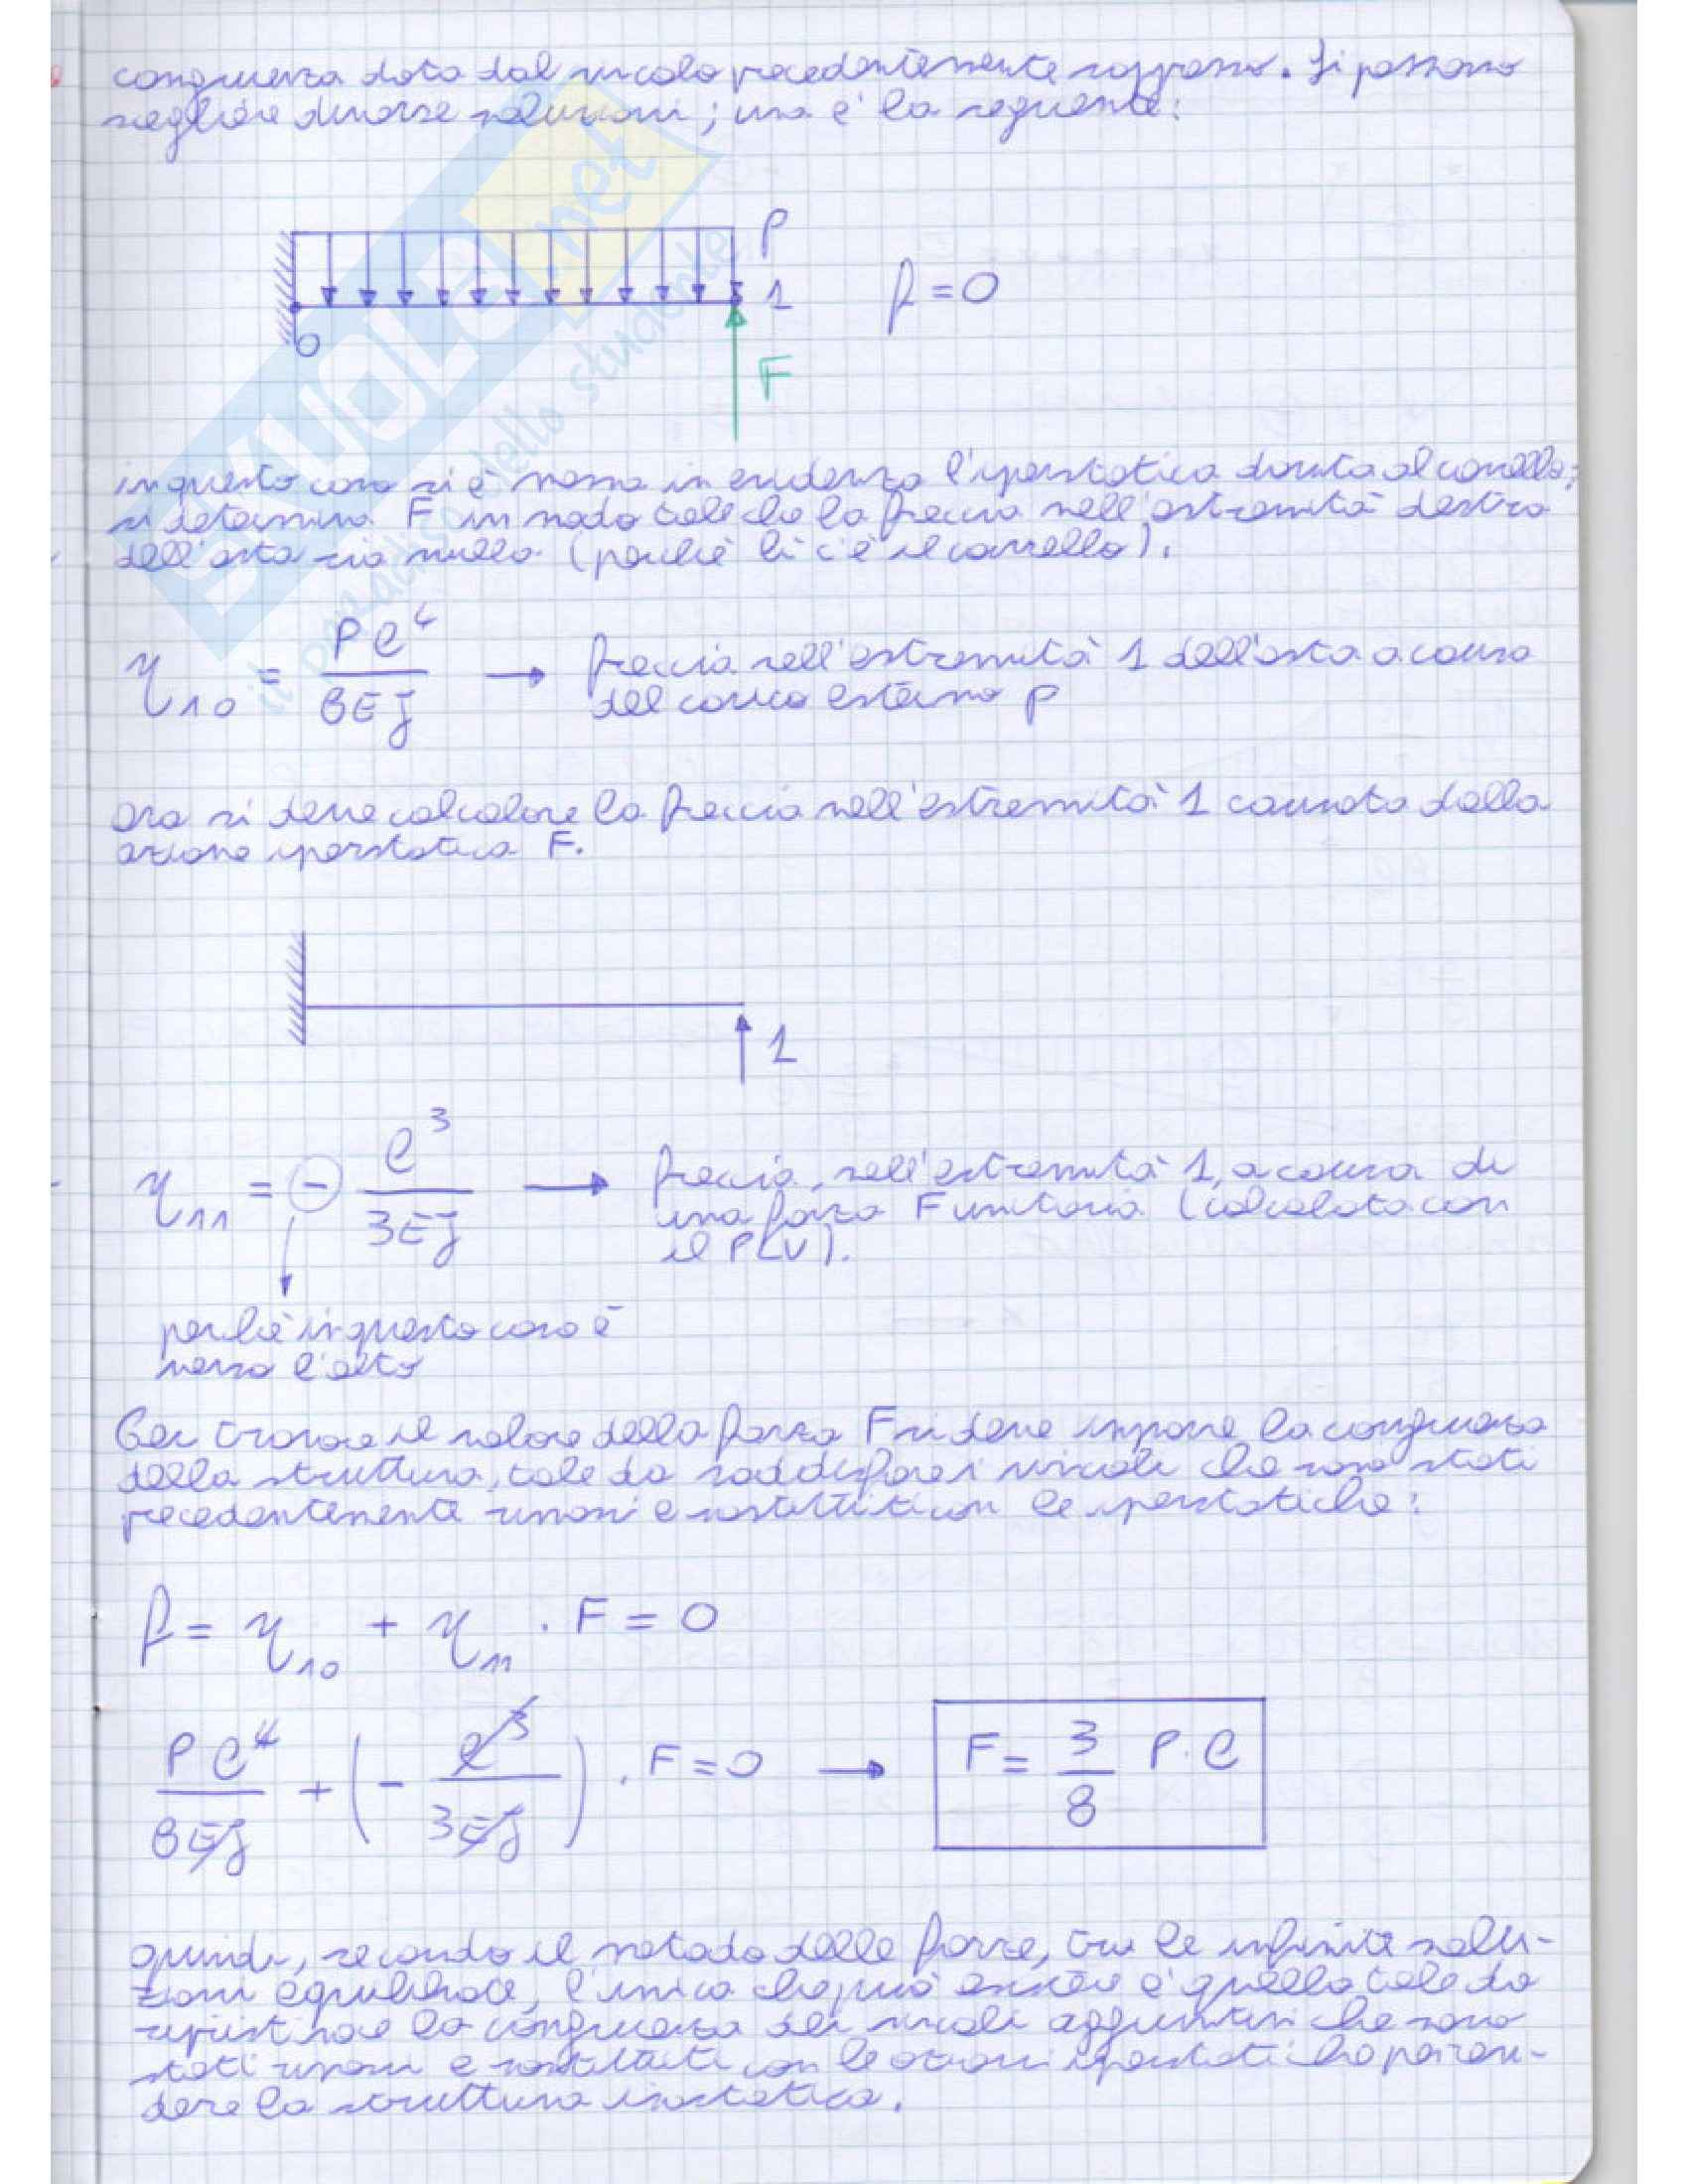 congruenza data dal vincolo precedentemente soppresso. Si possono
scegliere diverse soluzioni; una è la seguente:
P
1
f = 0
O
F
in questo caso si è messa in evidenza l'iperstatica dovuta al carrello;
si determina F in modo tale che la freccia nell'estremità destra
dell'asta sia nulla (perchè lì c'è il carrello).
η₁₀ = Pl⁴ / 8EJ → freccia nell'estremità 1 dell'asta a causa
del carico esterno p
ora si deve calcolare la freccia nell'estremità 1 causata dalla
azione iperstatica F.
1
η₁₁ = - l³ / 3EJ → freccia, nell'estremità 1, a causa di
una forza F unitaria (calcolata con
il PLV).
perchè in questo caso è
verso l'alto
Per trovare il valore della forza F si deve imporre la congruenza
della struttura, tale da soddisfare i vincoli che sono stati
precedentemente rimossi e sostituiti con le iperstatiche:
f = η₁₀ + η₁₁ · F = 0
Pl⁴ / 8EJ + (- l³ / 3EJ) · F = 0 → F = 3/8 P · l
quindi, secondo il metodo delle forze, tra le infinite solu-
zioni equilibrate, l'unica che può esistere è quella tale da
ripristinare la congruenza dei vincoli aggiuntivi che sono
stati rimossi e sostituiti con le azioni iperstatiche per ren-
dere la struttura isostatica.
SKUOLA.net
il paradiso dello studente